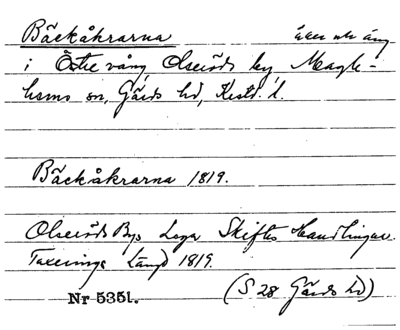 Bäckåkrarna åker och äng
i Östre vång, Olseröds by, Magle-
hems sn, Gärds hd, Krstd. l.
Bäckåkrarna 1819.
Olseröds Bys Laga Skiftes Handlingar.
Taxerings Längd 1819.
Nr 5351. (S 28 Gärds hd)